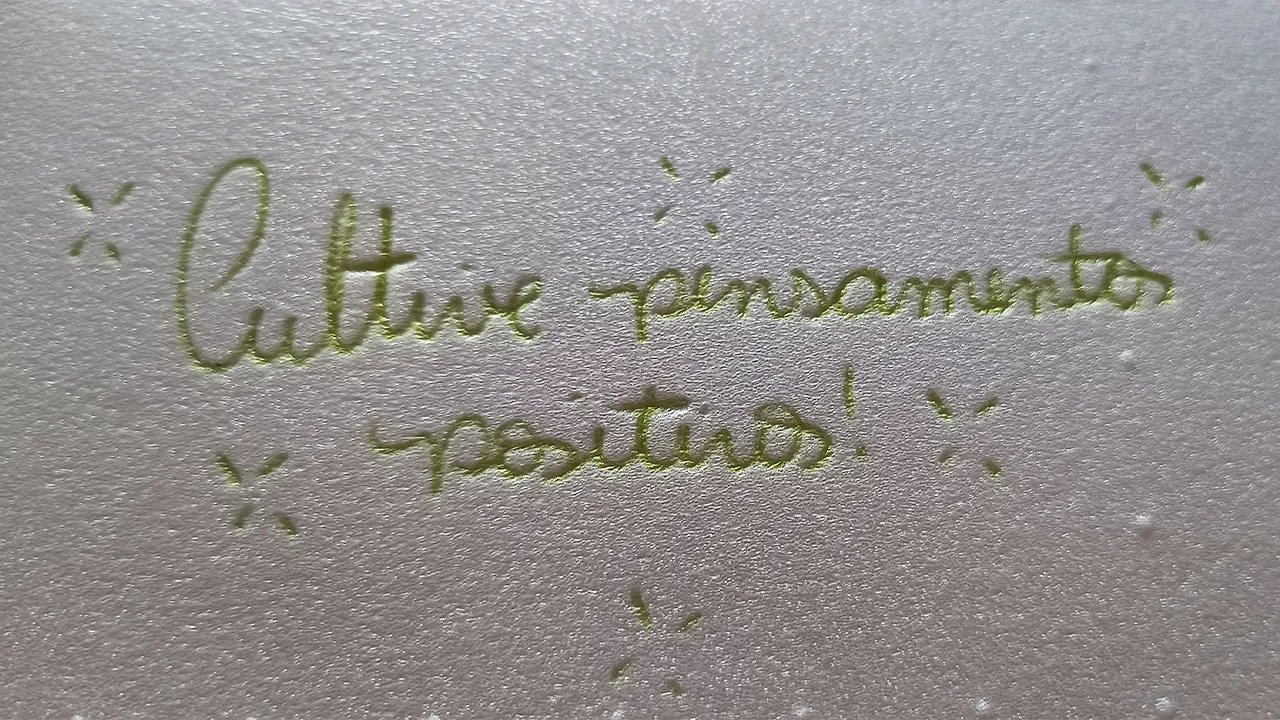 Cultive pensamentos
positivos!